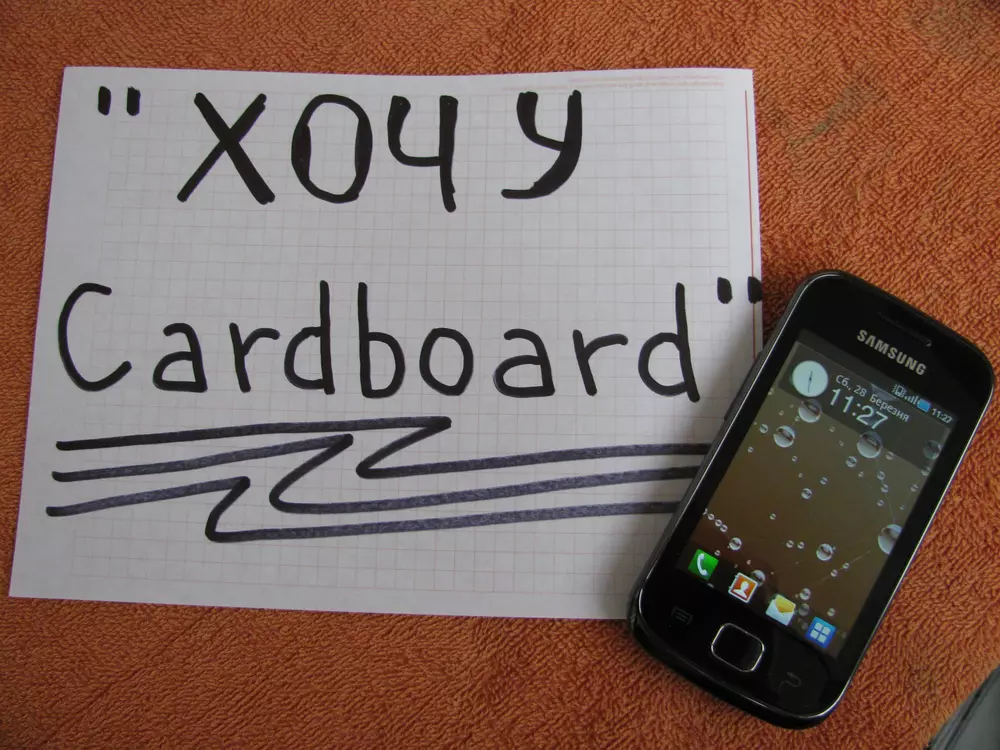 " ХОЧУ
Cardboard"
SAMSUNG
11:27
Сб, 28 Березня
11:27